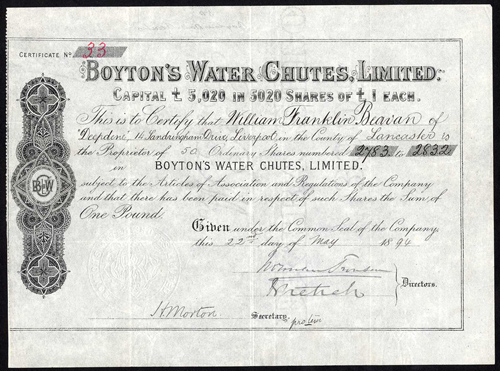 CERTIFICATE No. 33
BOYTON'S WATER CHUTES, LIMITED.
CAPITAL £5,020 IN 5020 SHARES OF £1 EACH.
This is to Certify that William Franklin Beavan of
"Deepdene" 14 Sandringham Drive, Liverpool in the County of Lancaster is
the Proprietor of 50 Ordinary Shares numbered 2783 to 2832
in BOYTON'S WATER CHUTES, LIMITED.
subject to the Articles of Association and Regulations of the Company
and that there has been paid in respect of such Shares the Sum of
One Pound.
Given under the Common Seal of the Company,
this 22nd day of May 1894
Directors.
H Morton
Secretary. pro tem